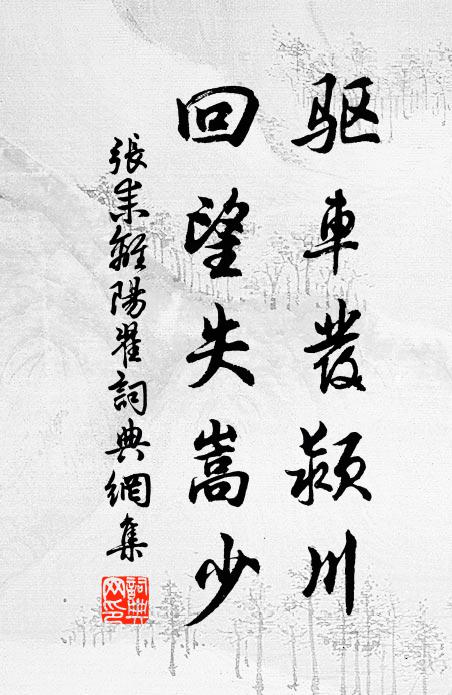 驱車發颍川
回望失嵩少
張耒離陽翟詞典網集
詞典
网印